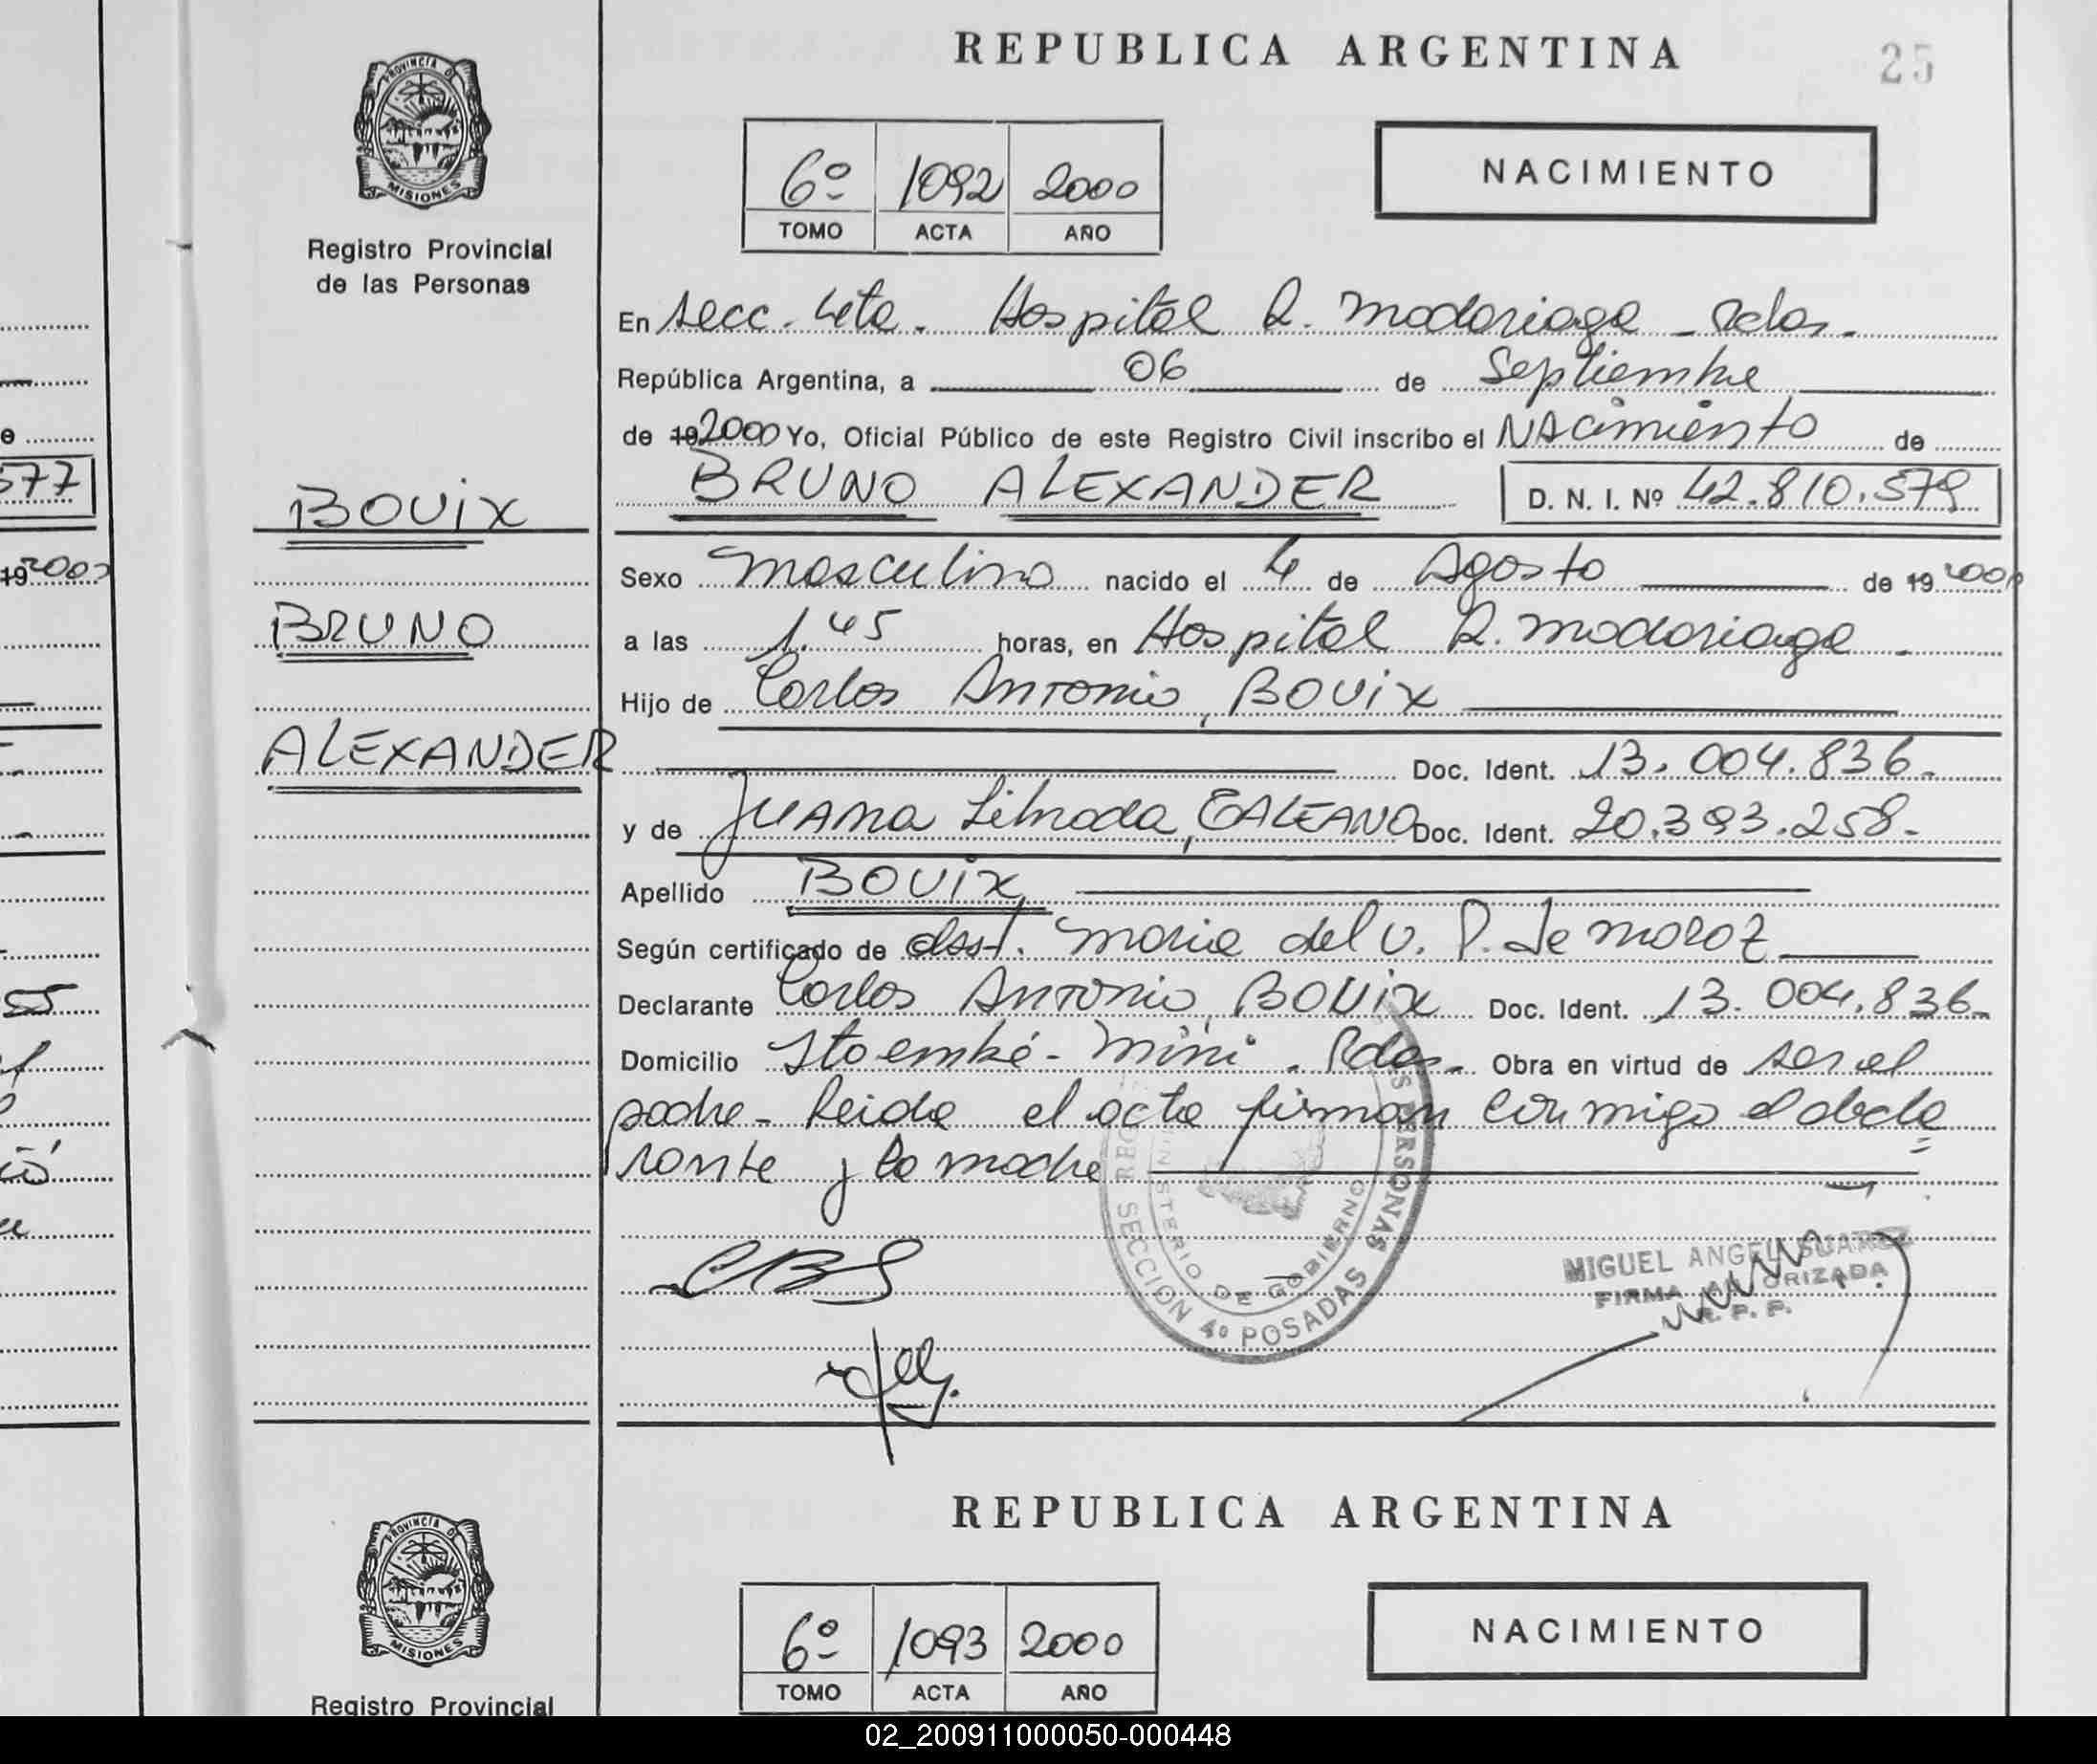 REPUBLICA ARGENTINA
25
PROVINCIA DE
MISIONES
Registro Provincial
de las Personas
6º 1092 2000
TOMO ACTA AÑO
NACIMIENTO
En Secc. 4ta. Hospital R. Madariaga - Pdas.
República Argentina, a 06 de Septiembre
de 19 2000 Yo, Oficial Público de este Registro Civil inscribo el Nacimiento de
BRUNO ALEXANDER D. N. I. Nº 42.810.579
BOUiX
BRUNO
ALEXANDER
Sexo masculino nacido el 4 de Agosto de 19 2000
a las 1.45 horas, en Hospital R. Madariaga.
Hijo de Carlos Antonio, BOUiX
Doc. Ident. 13.004.836.
y de Juana Librada, GALEANO Doc. Ident. 20.393.258.
Apellido BOUiX,
Según certificado de obst. Maria del V. P. de Moroz
Declarante Carlos Antonio, BOUiX Doc. Ident. 13.004.836.
Domicilio Itaembé - Mini. Pdas. Obra en virtud de ser el
padre - Leida el acta firman conmigo el decla
rante y la madre
PERSONAS
MINISTERIO DE GOBIERNO
SECCION 4º POSADAS
MIGUEL ANGEL SUAREZ
FIRMA AUTORIZADA
R. P. P.
REPUBLICA ARGENTINA
PROVINCIA DE
MISIONES
Registro Provincial
6º 1093 2000
TOMO ACTA AÑO
NACIMIENTO
577
19 2000
55
02_200911000050-000448